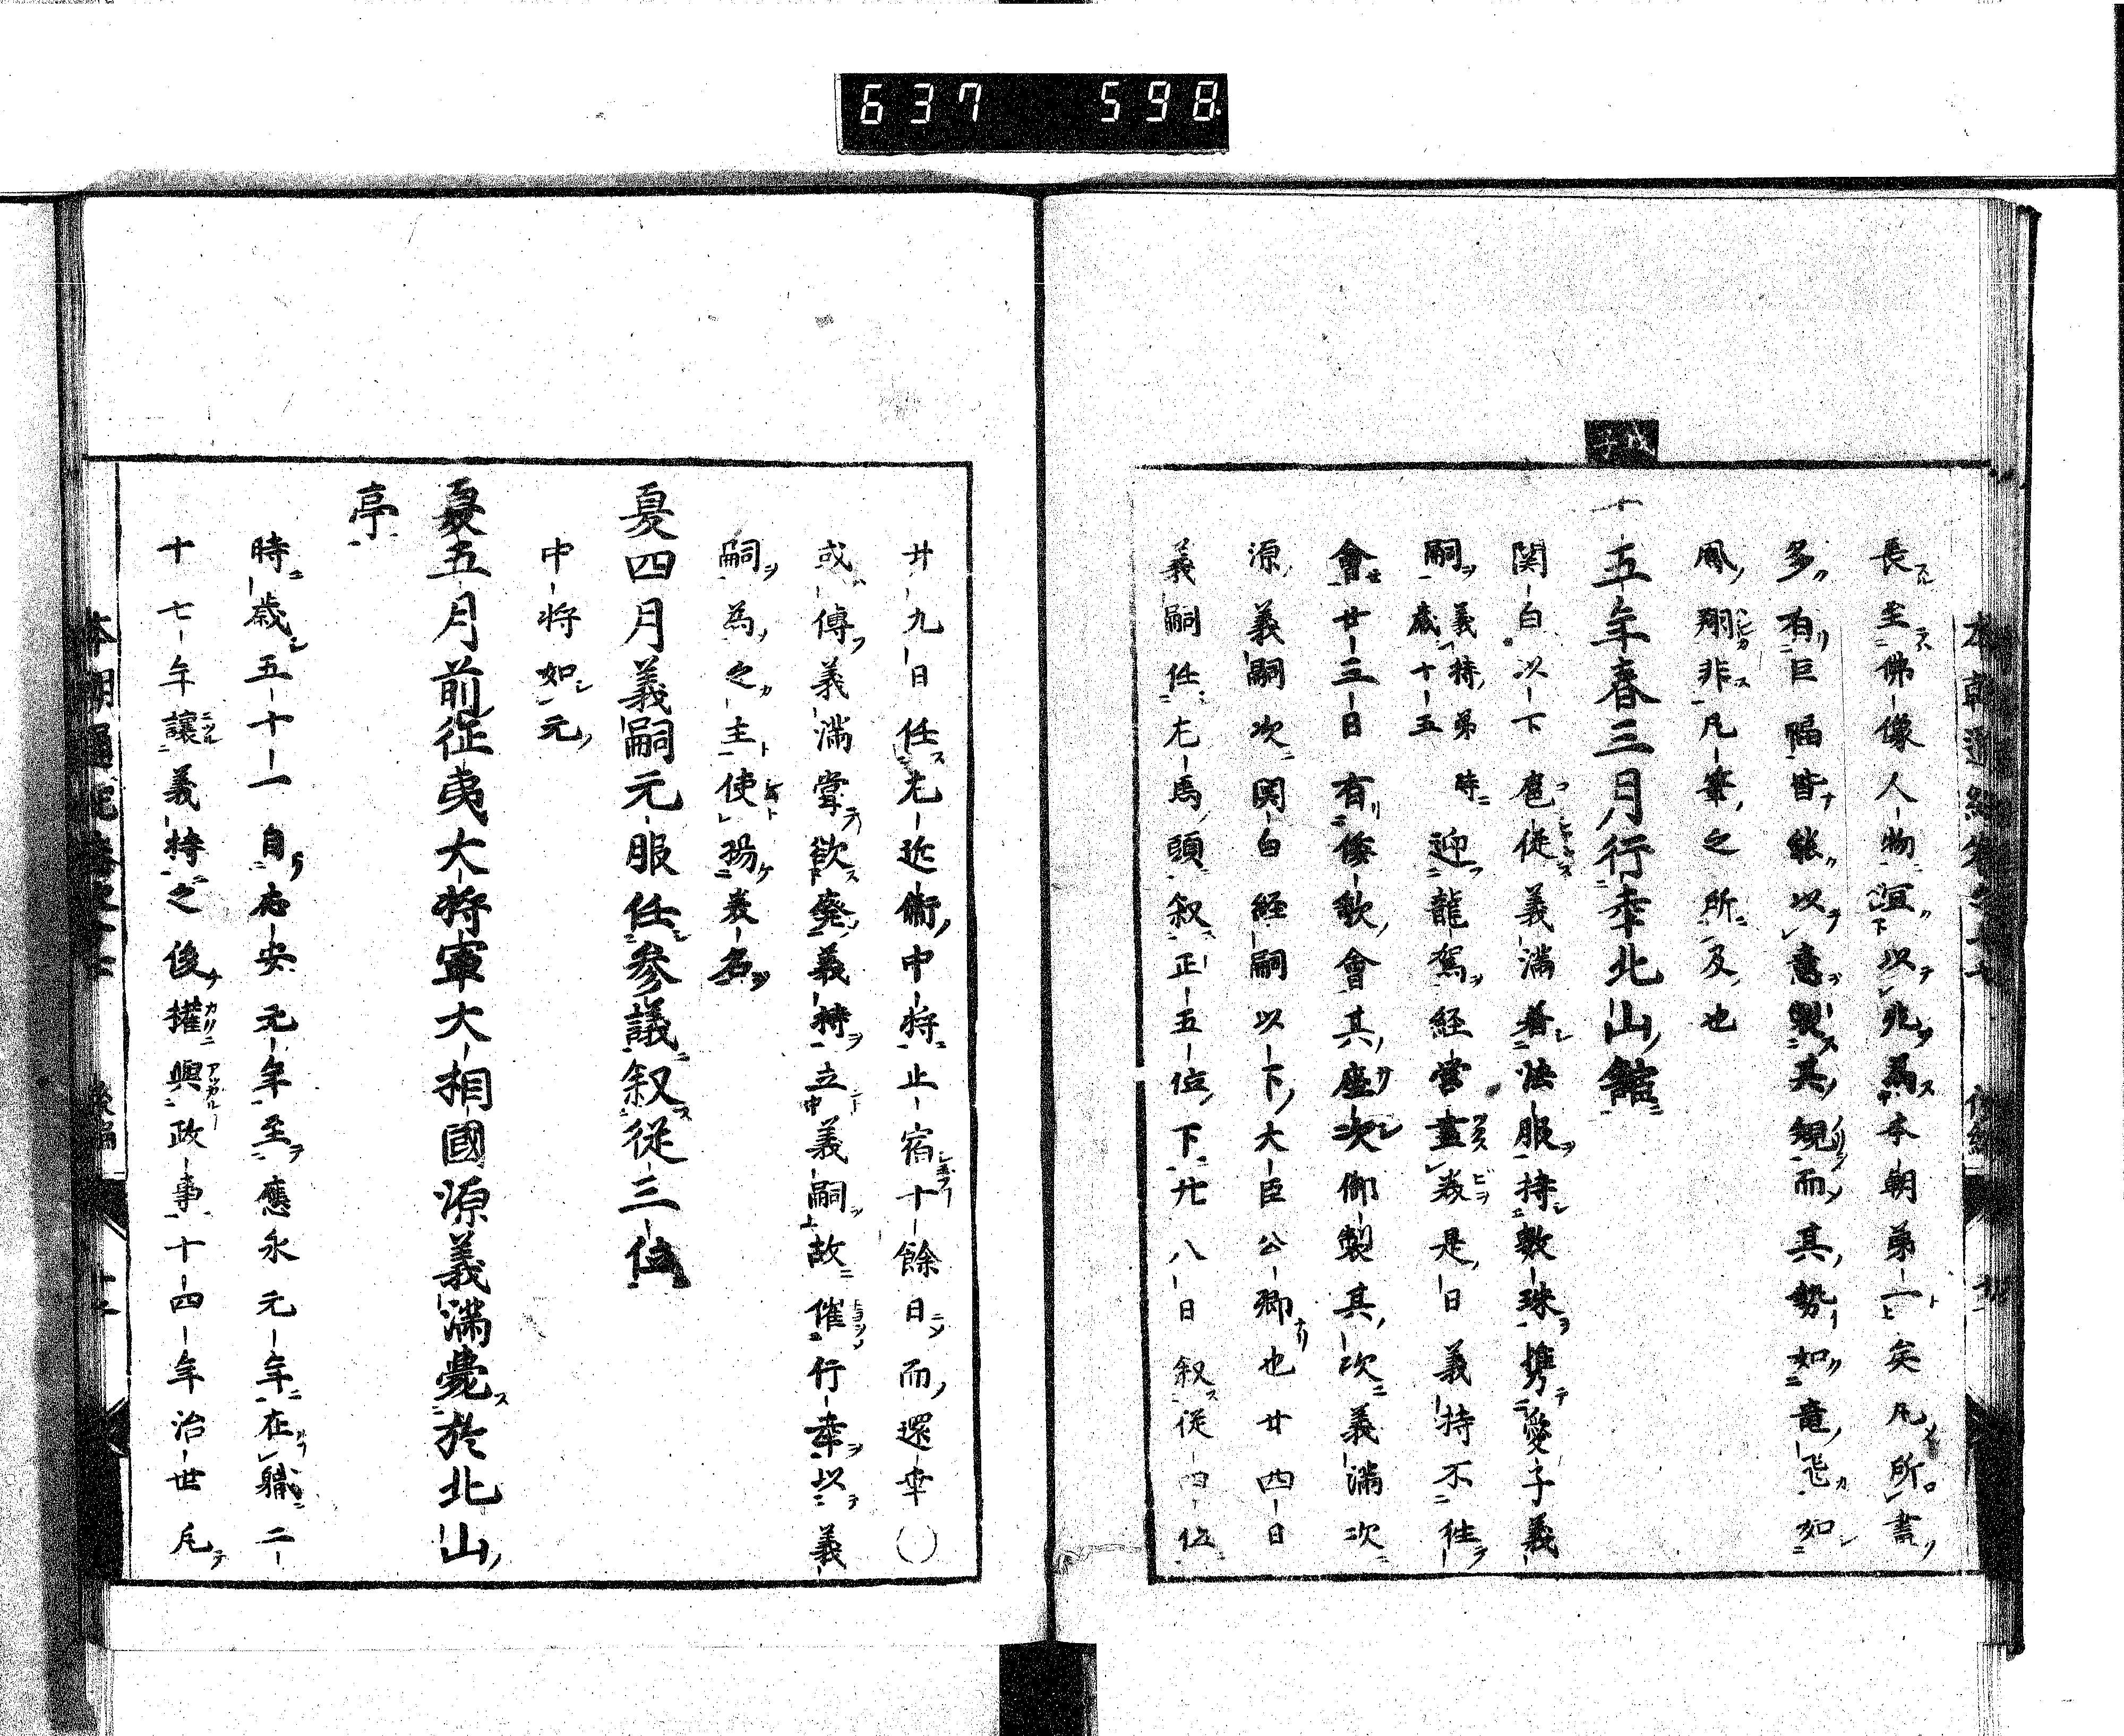 637 598
戊子
長至佛像人物宜以兆為本朝弟一矣凡所書
多有巨幅皆能以意製其規而其勢如竜飛如
鳳翔非凡筆之所及也
十五年春三月行幸北山館
関白以下扈從義満着法服持數珠携愛子義
嗣義持弟時歲十五迎龍駕経営盡美是日義持不徃
會廿三日有倭歌會其座次御製其次義満次
源義嗣次関白経嗣以下大臣公卿也廿四日
義嗣任左馬頭叙正五位下廾八日叙従四位
廿九日任左近衛中将止宿十餘日而還幸〇
或傳義満嘗欲廢義持立義嗣故催行幸以義
嗣為之主使揚美名
夏四月義嗣元服任參議叙從三位
中将如元
夏五月前征夷大将軍大相國源義満薨於北山
亭
時歳五十一自應安元年至應永元年在職二
十七年讓義持之後擢興政事十四年治世凡